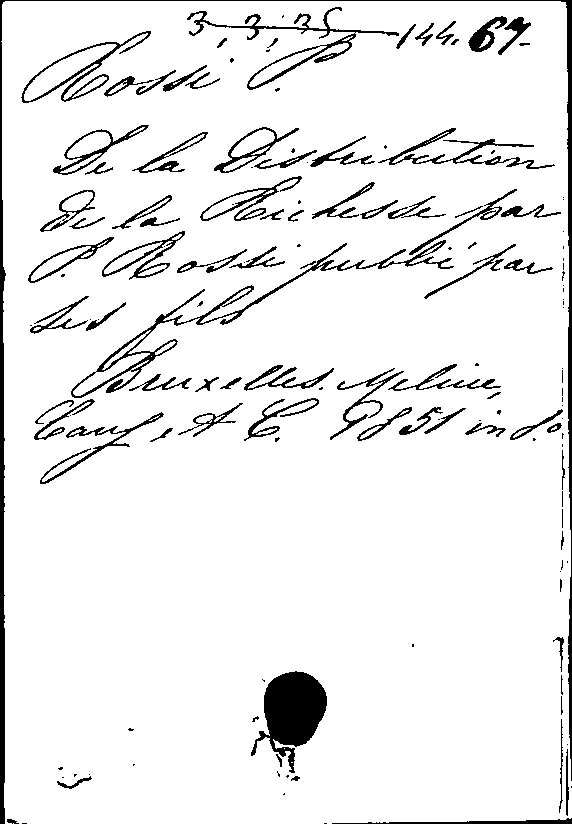 3, 3, 35 144. 67.
Rossi P.
De la Distribution
de la Richesse par
P. Rossi publié par
ses fils
Bruxelles. Meline,
Cany et C. 1851 in 8.o